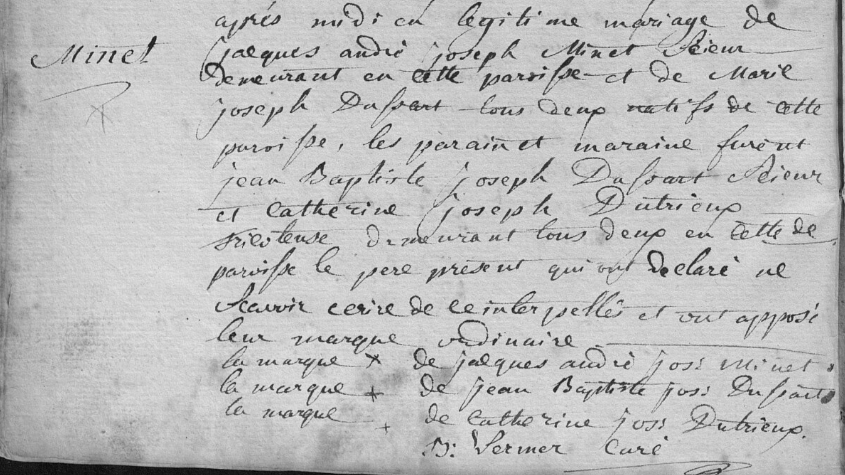 après midi en legitime mariage de
Minet
jacques andré joseph Minet Scieur
demeurant en cette paroisse et de Marie
joseph Dussart tous deux natifs de cette
paroisse, les parain et maraine furent
jean Baptiste joseph Dussart Scieur
et catherine joseph Dutrieux
tricoteuse demeurant tous deux en cette de
paroisse le pere present qui ont declaré ne
Scavoir ecrire de ce interpellés et ont apposé
leur marque ordinaire
la marque x de jacques andré jos: Minet
la marque + de jean Baptiste jos: Dussart
la marque + de catherine jos: Dutrieux
Vermer Curé